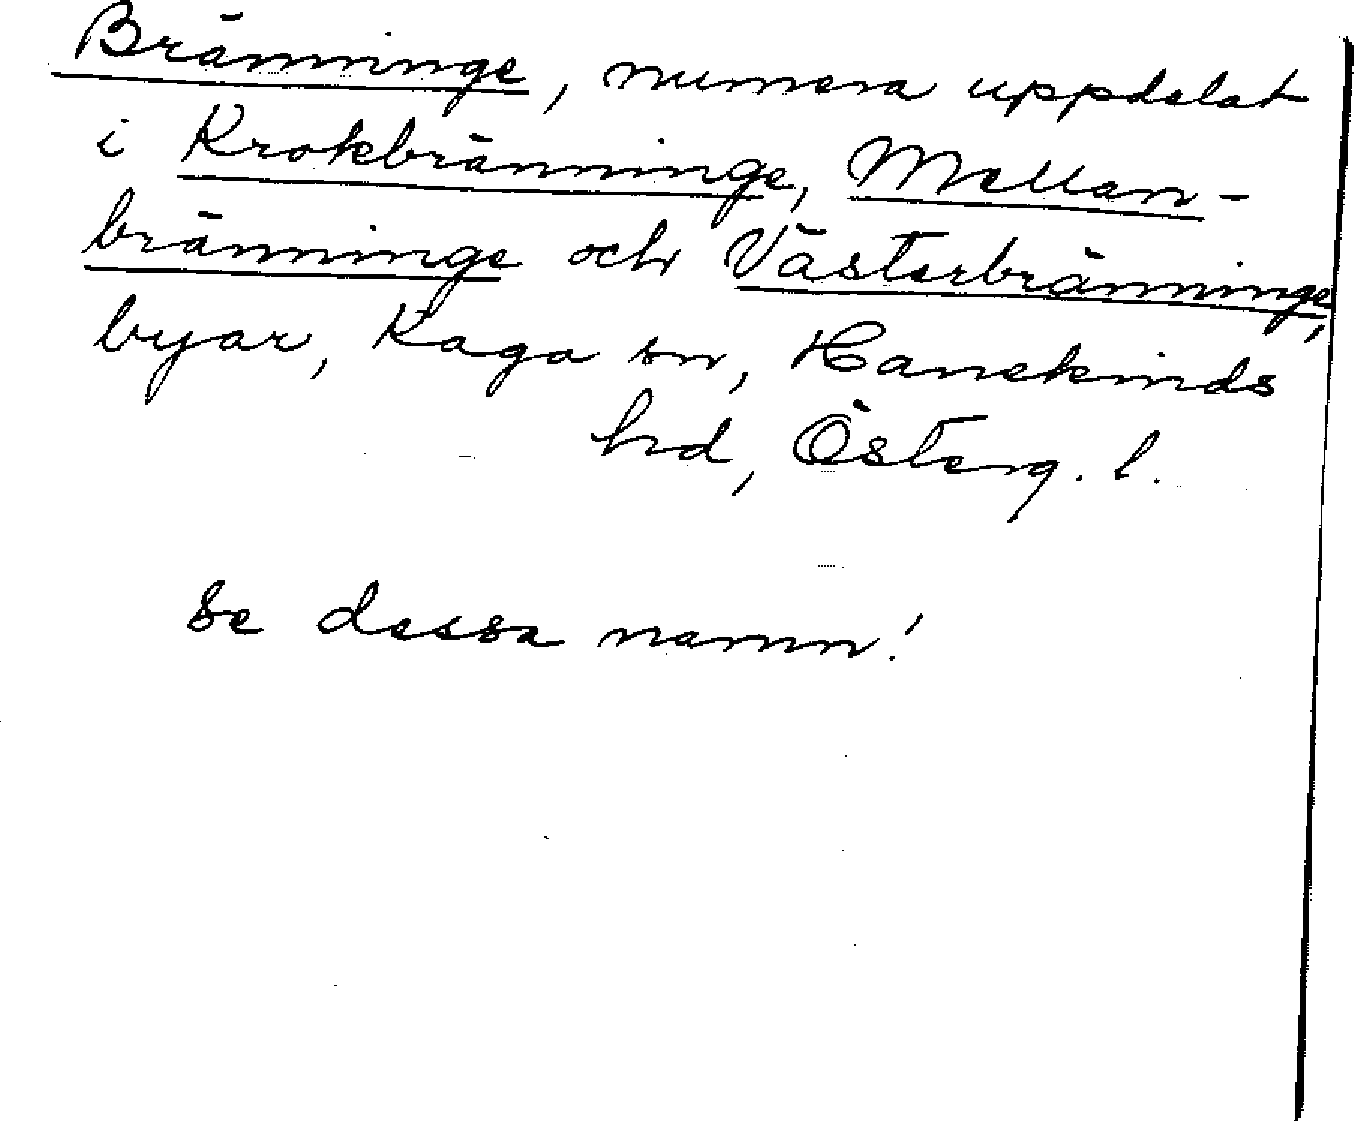 Bränninge, numera uppdelat
i Krokbränninge, Mellan-
bränninge och Västerbränninge,
byar, Kaga sn, Hanekinds
hd, Österg. l.
Se dessa namn!